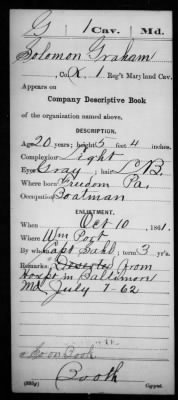 G 1 Cav. Md.
Solomon Graham
, Co. K, 1 Reg't Maryland Cav.
Appears on
Company Descriptive Book
of the organization named above.
DESCRIPTION.
Age 20 years; height 5 feet 4 inches.
Complexion Light
Eyes Gray ; hair L.B.
Where born Freedom Pa.
Occupation Boatman
ENLISTMENT.
When Oct 10 , 1861.
Where Wm Port
By whom Capt Sahl ; term 3 y'rs.
Remarks: Deserted from
Hosp. in Baltimore
Md July 7-62
Book
Booth
Copyist.